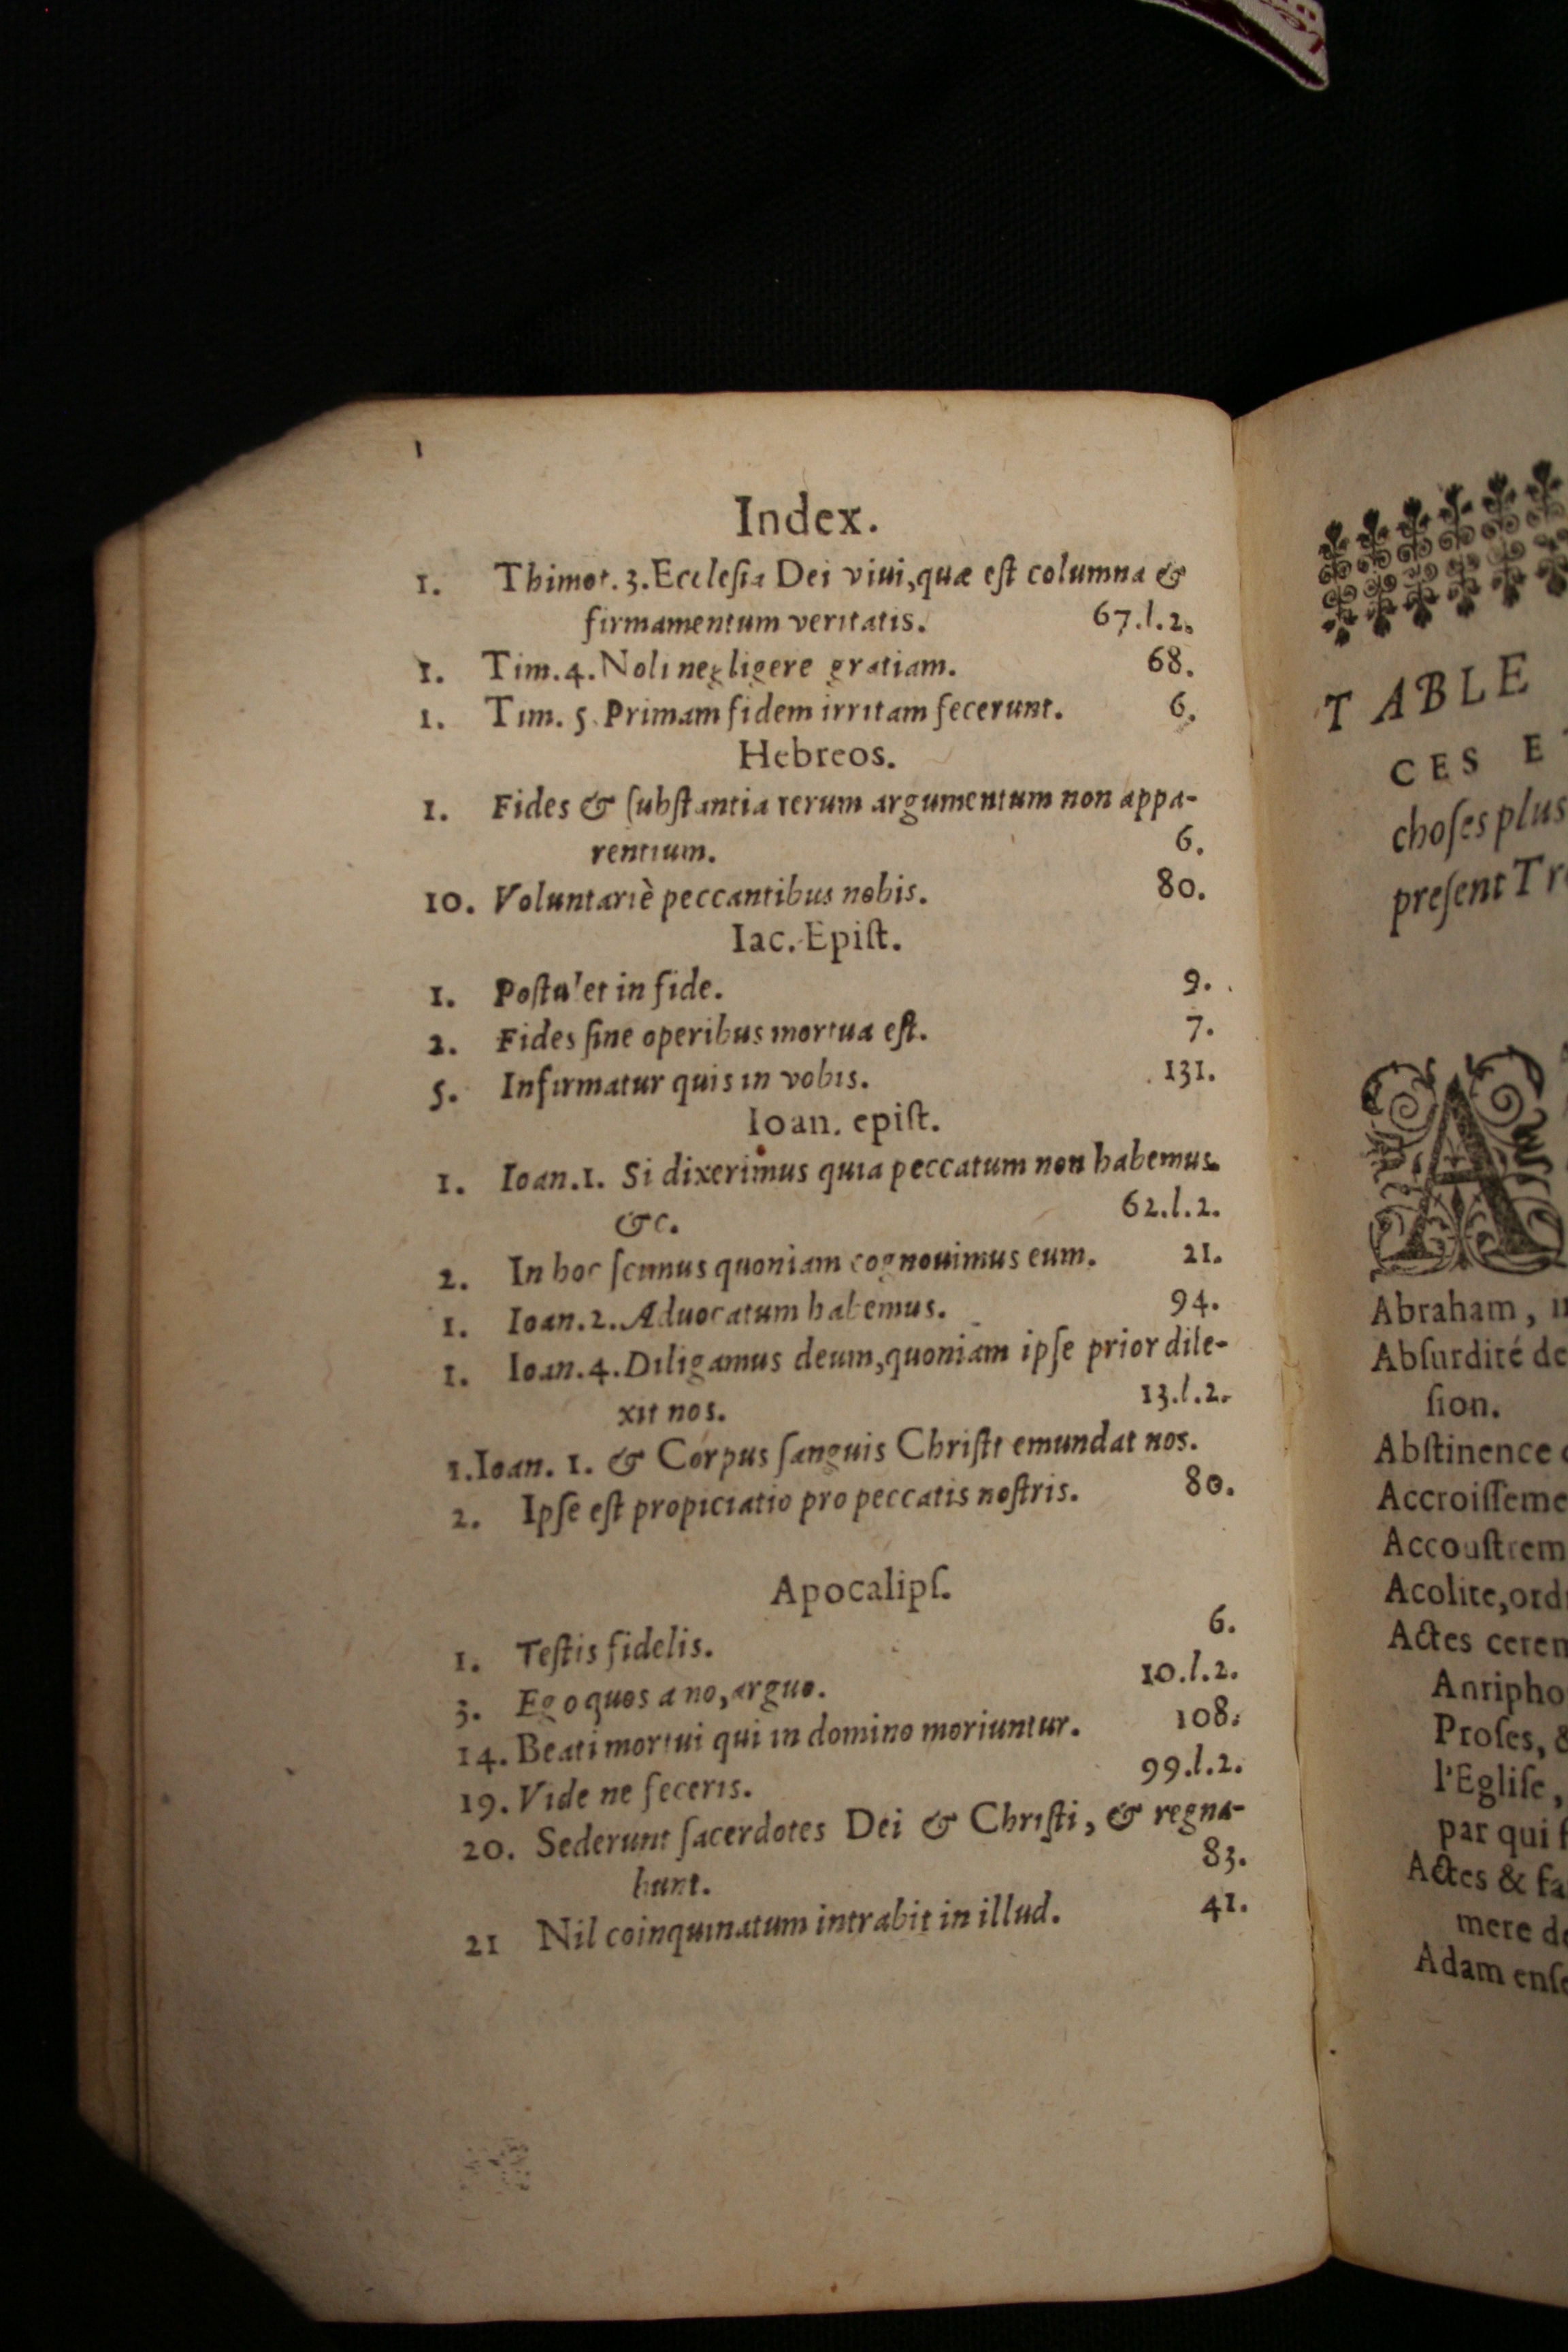 Index.
1. Thimot. 3. Ecclesia Dei viui, quæ est columna &
firmamentum veritatis. 67.l.2.
1. Tim. 4. Noli negligere gratiam. 68.
1. Tim. 5. Primam fidem irritam fecerunt. 6.
Hebreos.
1. Fides & ſubſtantia rerum argumentum non appa-
rentium. 6.
10. Voluntariè peccantibus nobis. 80.
Iac. Epiſt.
1. Poſtulet in fide. 9.
2. Fides ſine operibus mortua eſt. 7.
5. Infirmatur quis in vobis. 131.
Ioan. epiſt.
1. Ioan. 1. Si dixerimus quia peccatum non habemus.
&c. 62.l.2.
2. In hoc ſcimus quoniam cognouimus eum. 21.
1. Ioan. 2. Aduocatum habemus. 94.
1. Ioan. 4. Diligamus deum, quoniam ipſe prior dile-
xit nos. 13.l.2.
1. Ioan. 1. & Corpus ſanguis Chriſti emundat nos.
2. Ipſe eſt propiciatio pro peccatis noſtris. 80.
Apocalipſ.
1. Teſtis fidelis. 6.
3. Ego quos a no, arguo. 10.l.2.
14. Beati mortui qui in domino moriuntur. 108.
19. Vide ne feceris. 99.l.2.
20. Sederunt ſacerdotes Dei & Chriſti, & regna-
bunt. 83.
21 Nil coinquinatum intrabit in illud. 41.
TABLE
CES
choſes plus
preſent
A
Abraham,
Abſurdité de
ſion.
Abſtinence
Accroiſſeme
Accouſtrem
Acolite, ord
Actes cerem
Antipho
Proſes, &
l'Egliſe,
par qui f
Actes & fa
mere de
Adam enſe